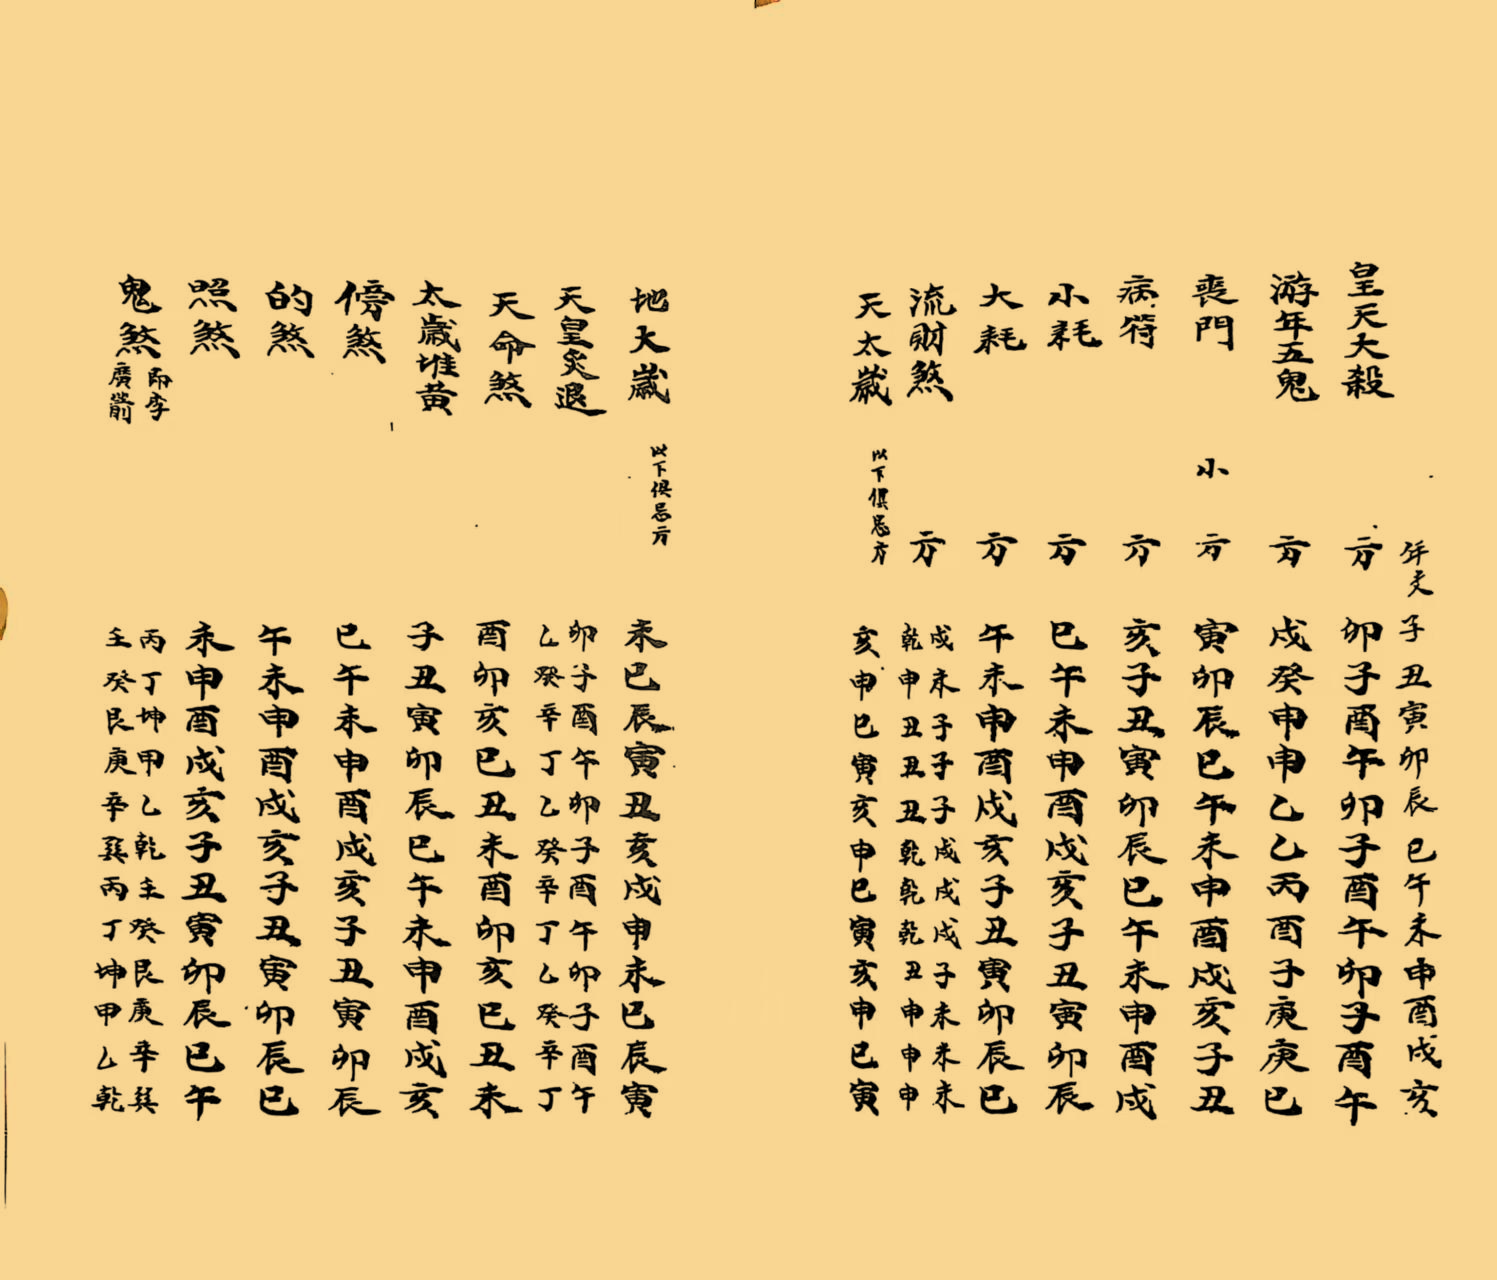 年支 子丑寅卯辰巳午未申酉戌亥
皇天大殺 方 卯子酉午卯子酉午卯子酉午
游年五鬼 方 戌癸申申乙乙丙酉子庚庚巳
喪門 小 方 寅卯辰巳午未申酉戌亥子丑
病符 方 亥子丑寅卯辰巳午未申酉戌
小耗 方 巳午未申酉戌亥子丑寅卯辰
大耗 方 午未申酉戌亥子丑寅卯辰巳
流財煞 方 戌未子子子戌戌戌子未未未
乾申丑丑丑乾乾乾丑申申申
天太歲 以下俱忌方 亥申巳寅亥申巳寅亥申巳寅
地大歲 以下俱忌方 未巳辰寅丑亥戌申未巳辰寅
天皇炙退 卯子酉午卯子酉午卯子酉午
乙癸辛丁乙癸辛丁乙癸辛丁
天命煞 酉卯亥巳丑未酉卯亥巳丑未
太歲堆黃 子丑寅卯辰巳午未申酉戌亥
傍煞 巳午未申酉戌亥子丑寅卯辰
的煞 午未申酉戌亥子丑寅卯辰巳
照煞 未申酉戌亥子丑寅卯辰巳午
鬼煞 即李廣箭 丙丁坤甲乙乾壬癸艮庚辛巽
壬癸艮庚辛巽丙丁坤甲乙乾